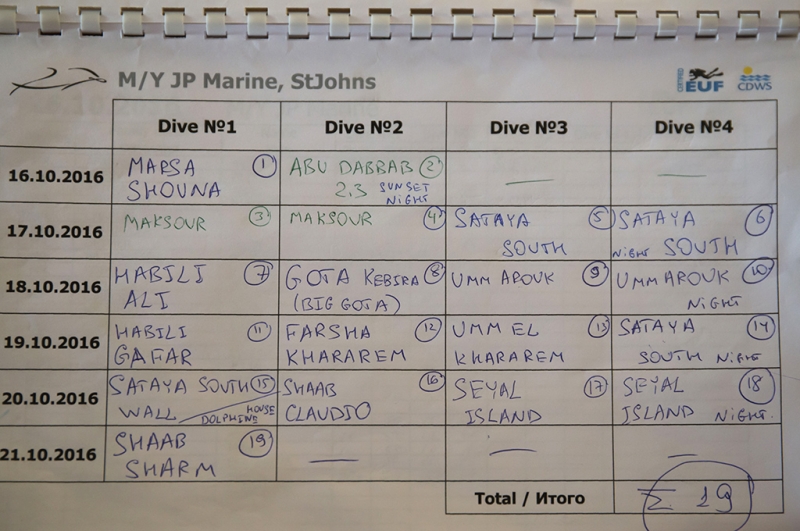 M/Y JP Marine, StJohns
CERTIFIED EUF
CDWS
Dive №1 Dive №2 Dive №3 Dive №4
16.10.2016
MARSA 1
SHOUNA
ABU DABBAB 2
2.3 SUNSET
NIGHT
—
—
17.10.2016
MAKSOUR 3
MAKSOUR 4
SATAYA 5
SOUTH
SATAYA 6
NIGHT SOUTH
18.10.2016
HABILI 7
ALI
GOTA KEBIRA 8
(BIG GOTA)
UMM AROUK 9
UMM AROUK 10
NIGHT
19.10.2016
HABILI 11
GAFAR
FARSHA 12
KHARAREM
UMM EL 13
KHARAREM
SATAYA 14
SOUTH NIGHT
20.10.2016
SATAYA SOUTH 15
WALL / DOLPHINE HOUSE
SHAAB 16
CLAUDIO
SEYAL 17
ISLAND
SEYAL 18
ISLAND NIGHT.
21.10.2016
SHAAB 19
SHARM
—
—
—
Total / Итого
Σ 19